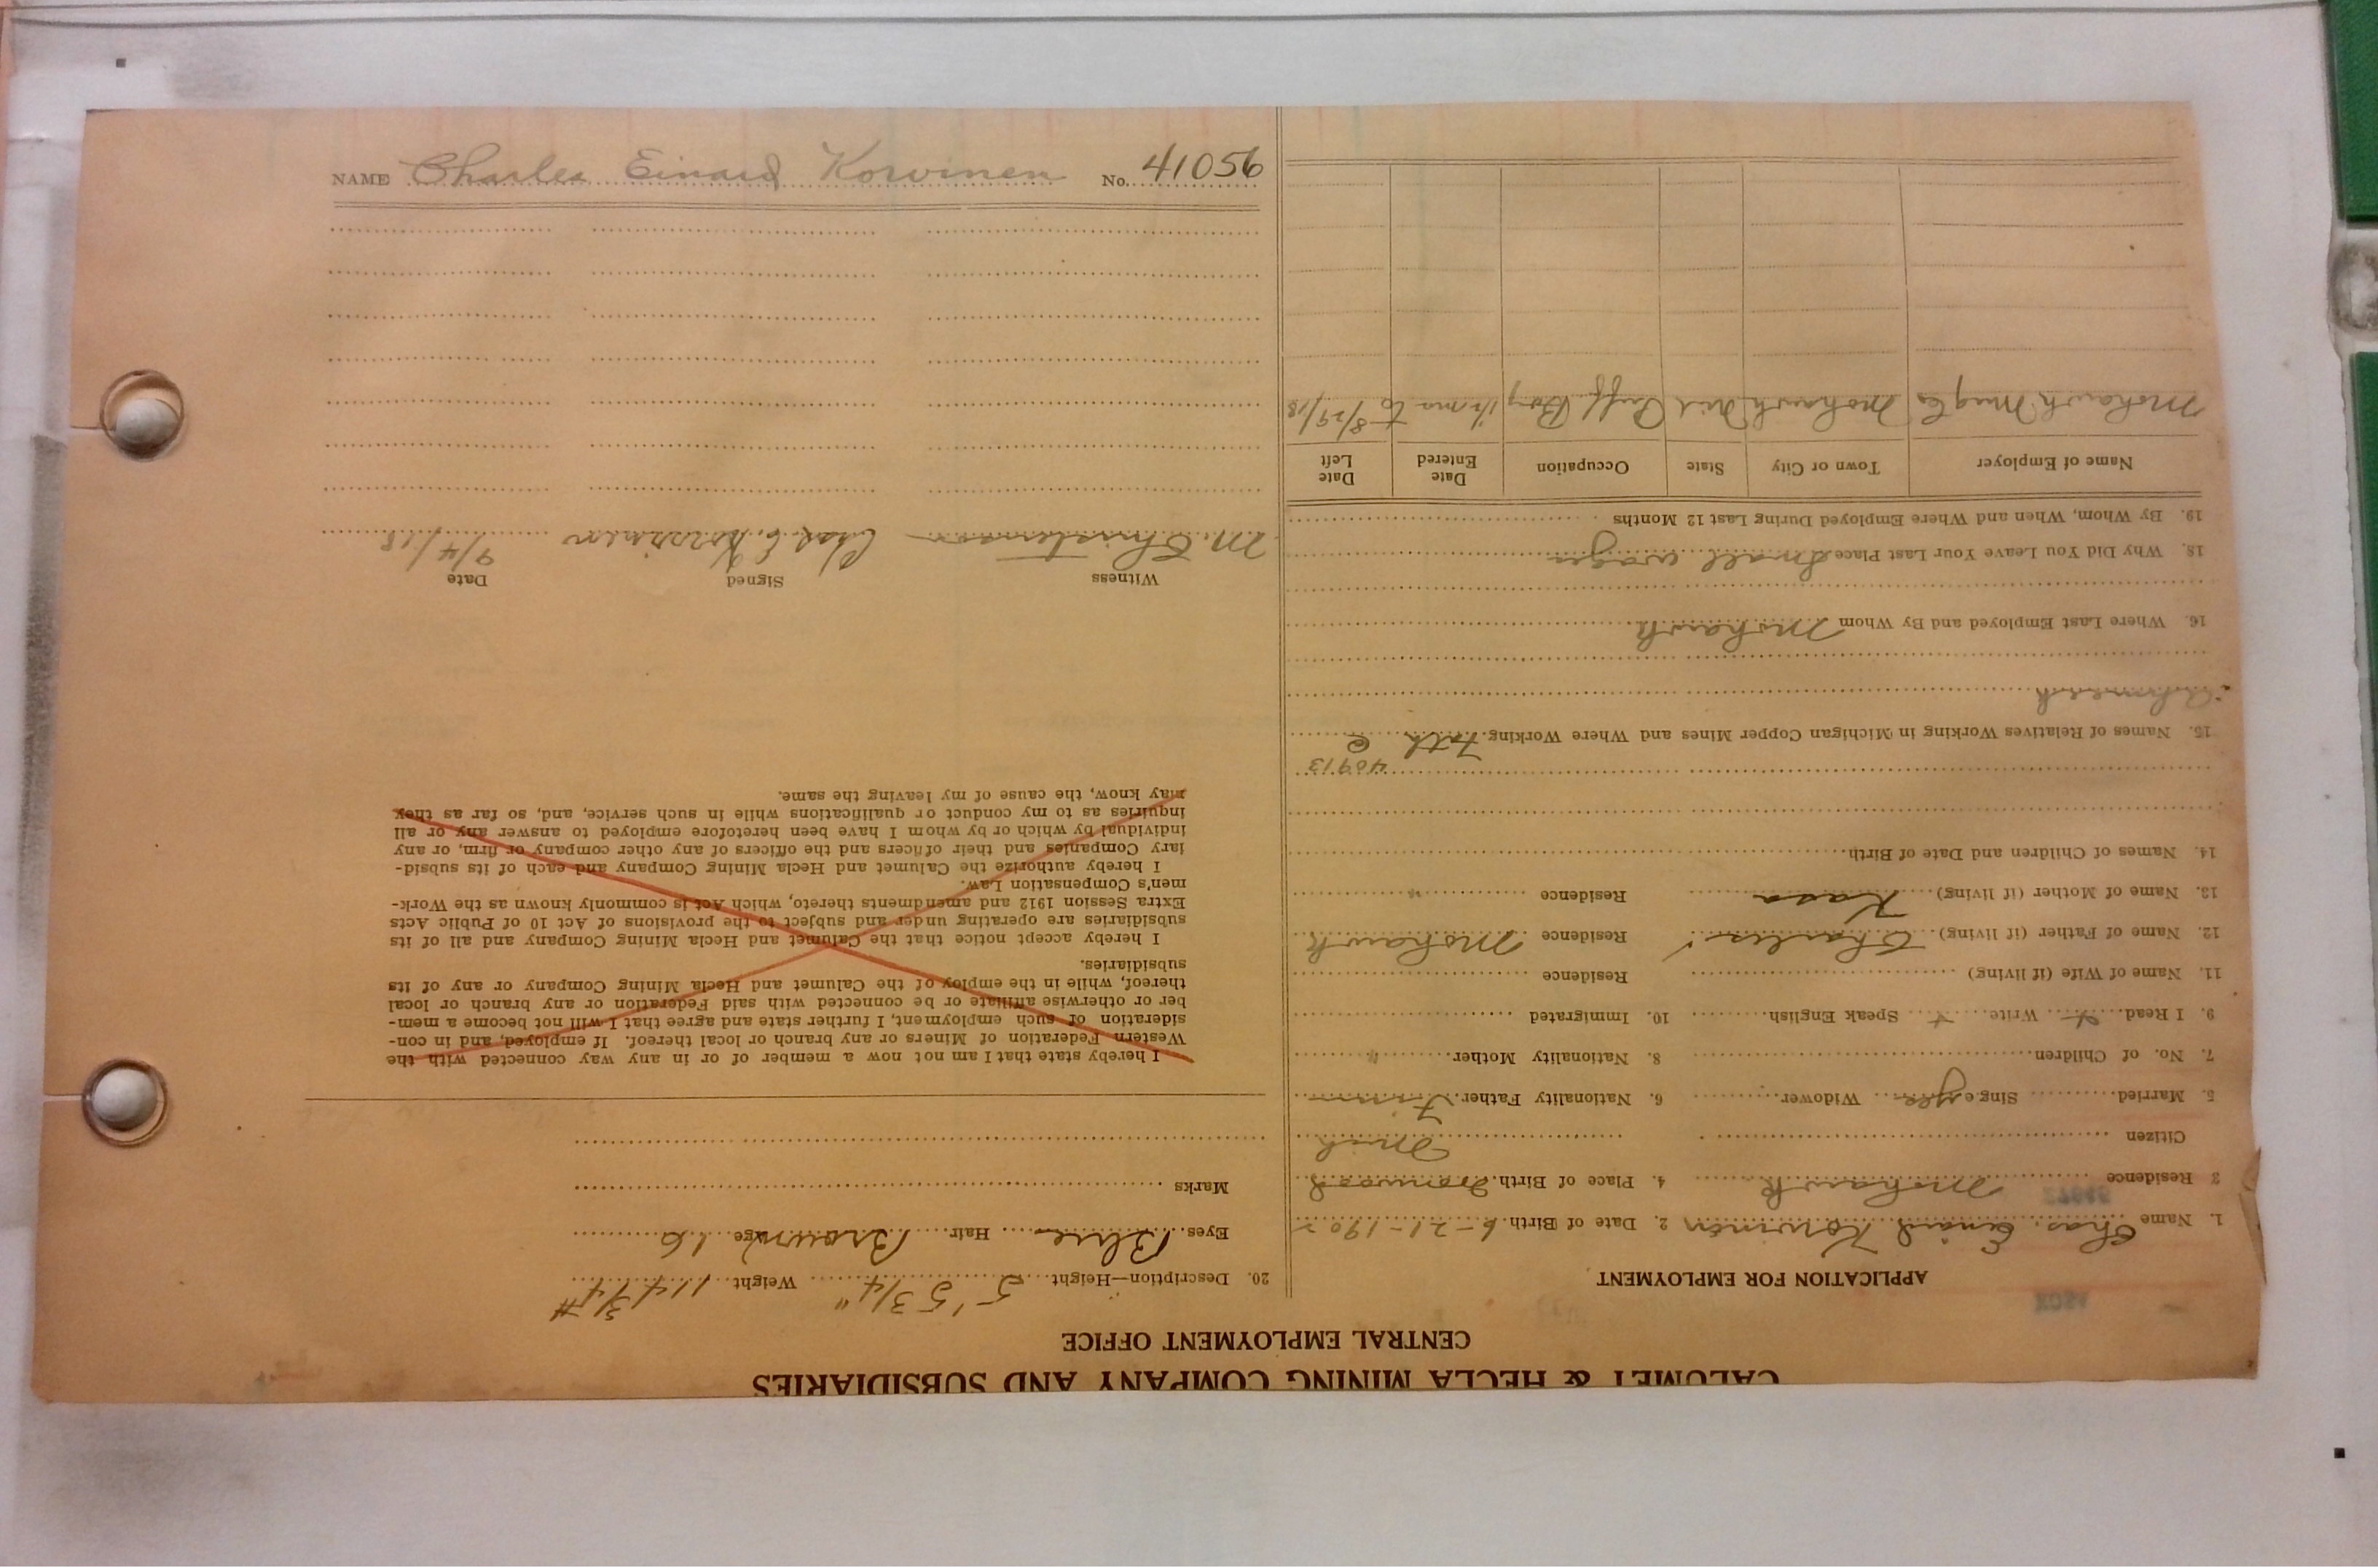 NAME Charles Einard Korvinen No. 41056
CALUMET & HECLA MINING COMPANY AND SUBSIDIARIES
CENTRAL EMPLOYMENT OFFICE
APPLICATION FOR EMPLOYMENT
1. Name Chas. Einard Korvinen 2. Date of Birth 6-21-1902
3 Residence Mohawk 4. Place of Birth Ironwood
Citizen Mich
5. Married Single Widower 6. Nationality Father Finn
7. No. of Children 8. Nationality Mother "
9. I Read + Write + Speak English 10. Immigrated
11. Name of Wife (if living) Residence
12. Name of Father (if living) Charles Residence Mohawk
13. Name of Mother (if living) Residence "
14. Names of Children and Date of Birth
40913
15. Names of Relatives Working in Michigan Copper Mines and Where Working
16. Where Last Employed and By Whom Mohawk
18. Why Did You Leave Your Last Place Small wages
19. By Whom, When and Where Employed During Last 12 Months
Name of Employer Town or City State Occupation Date Entered Date Left
Mohawk Mng Co Mohawk Mich Puff Boy 1½ ma to 8/29/18
20. Description—Height 5' 5 3/4" Weight 114 3/4 #
Eyes Blue Hair Brown Age 16
Marks
I hereby state that I am not now a member of or in any way connected with the
Western Federation of Miners or any branch or local thereof. If employed, and in con-
sideration of such employment, I further state and agree that I will not become a mem-
ber or otherwise affiliate or be connected with said Federation or any branch or local
thereof, while in the employ of the Calumet and Hecla Mining Company or any of its
subsidiaries.
I hereby accept notice that the Calumet and Hecla Mining Company and all of its
subsidiaries are operating under and subject to the provisions of Act 10 of Public Acts
Extra Session 1912 and amendments thereto, which Act is commonly known as the Work-
men's Compensation Law.
I hereby authorize the Calumet and Hecla Mining Company and each of its subsid-
iary Companies and their officers and the officers of any other company or firm, or any
individual by which or by whom I have been heretofore employed to answer any or all
inquiries as to my conduct or qualifications while in such service, and, so far as they
may know, the cause of my leaving the same.
Witness Signed Date
M. Christenson Chas. E. Korvinen 9/4/18